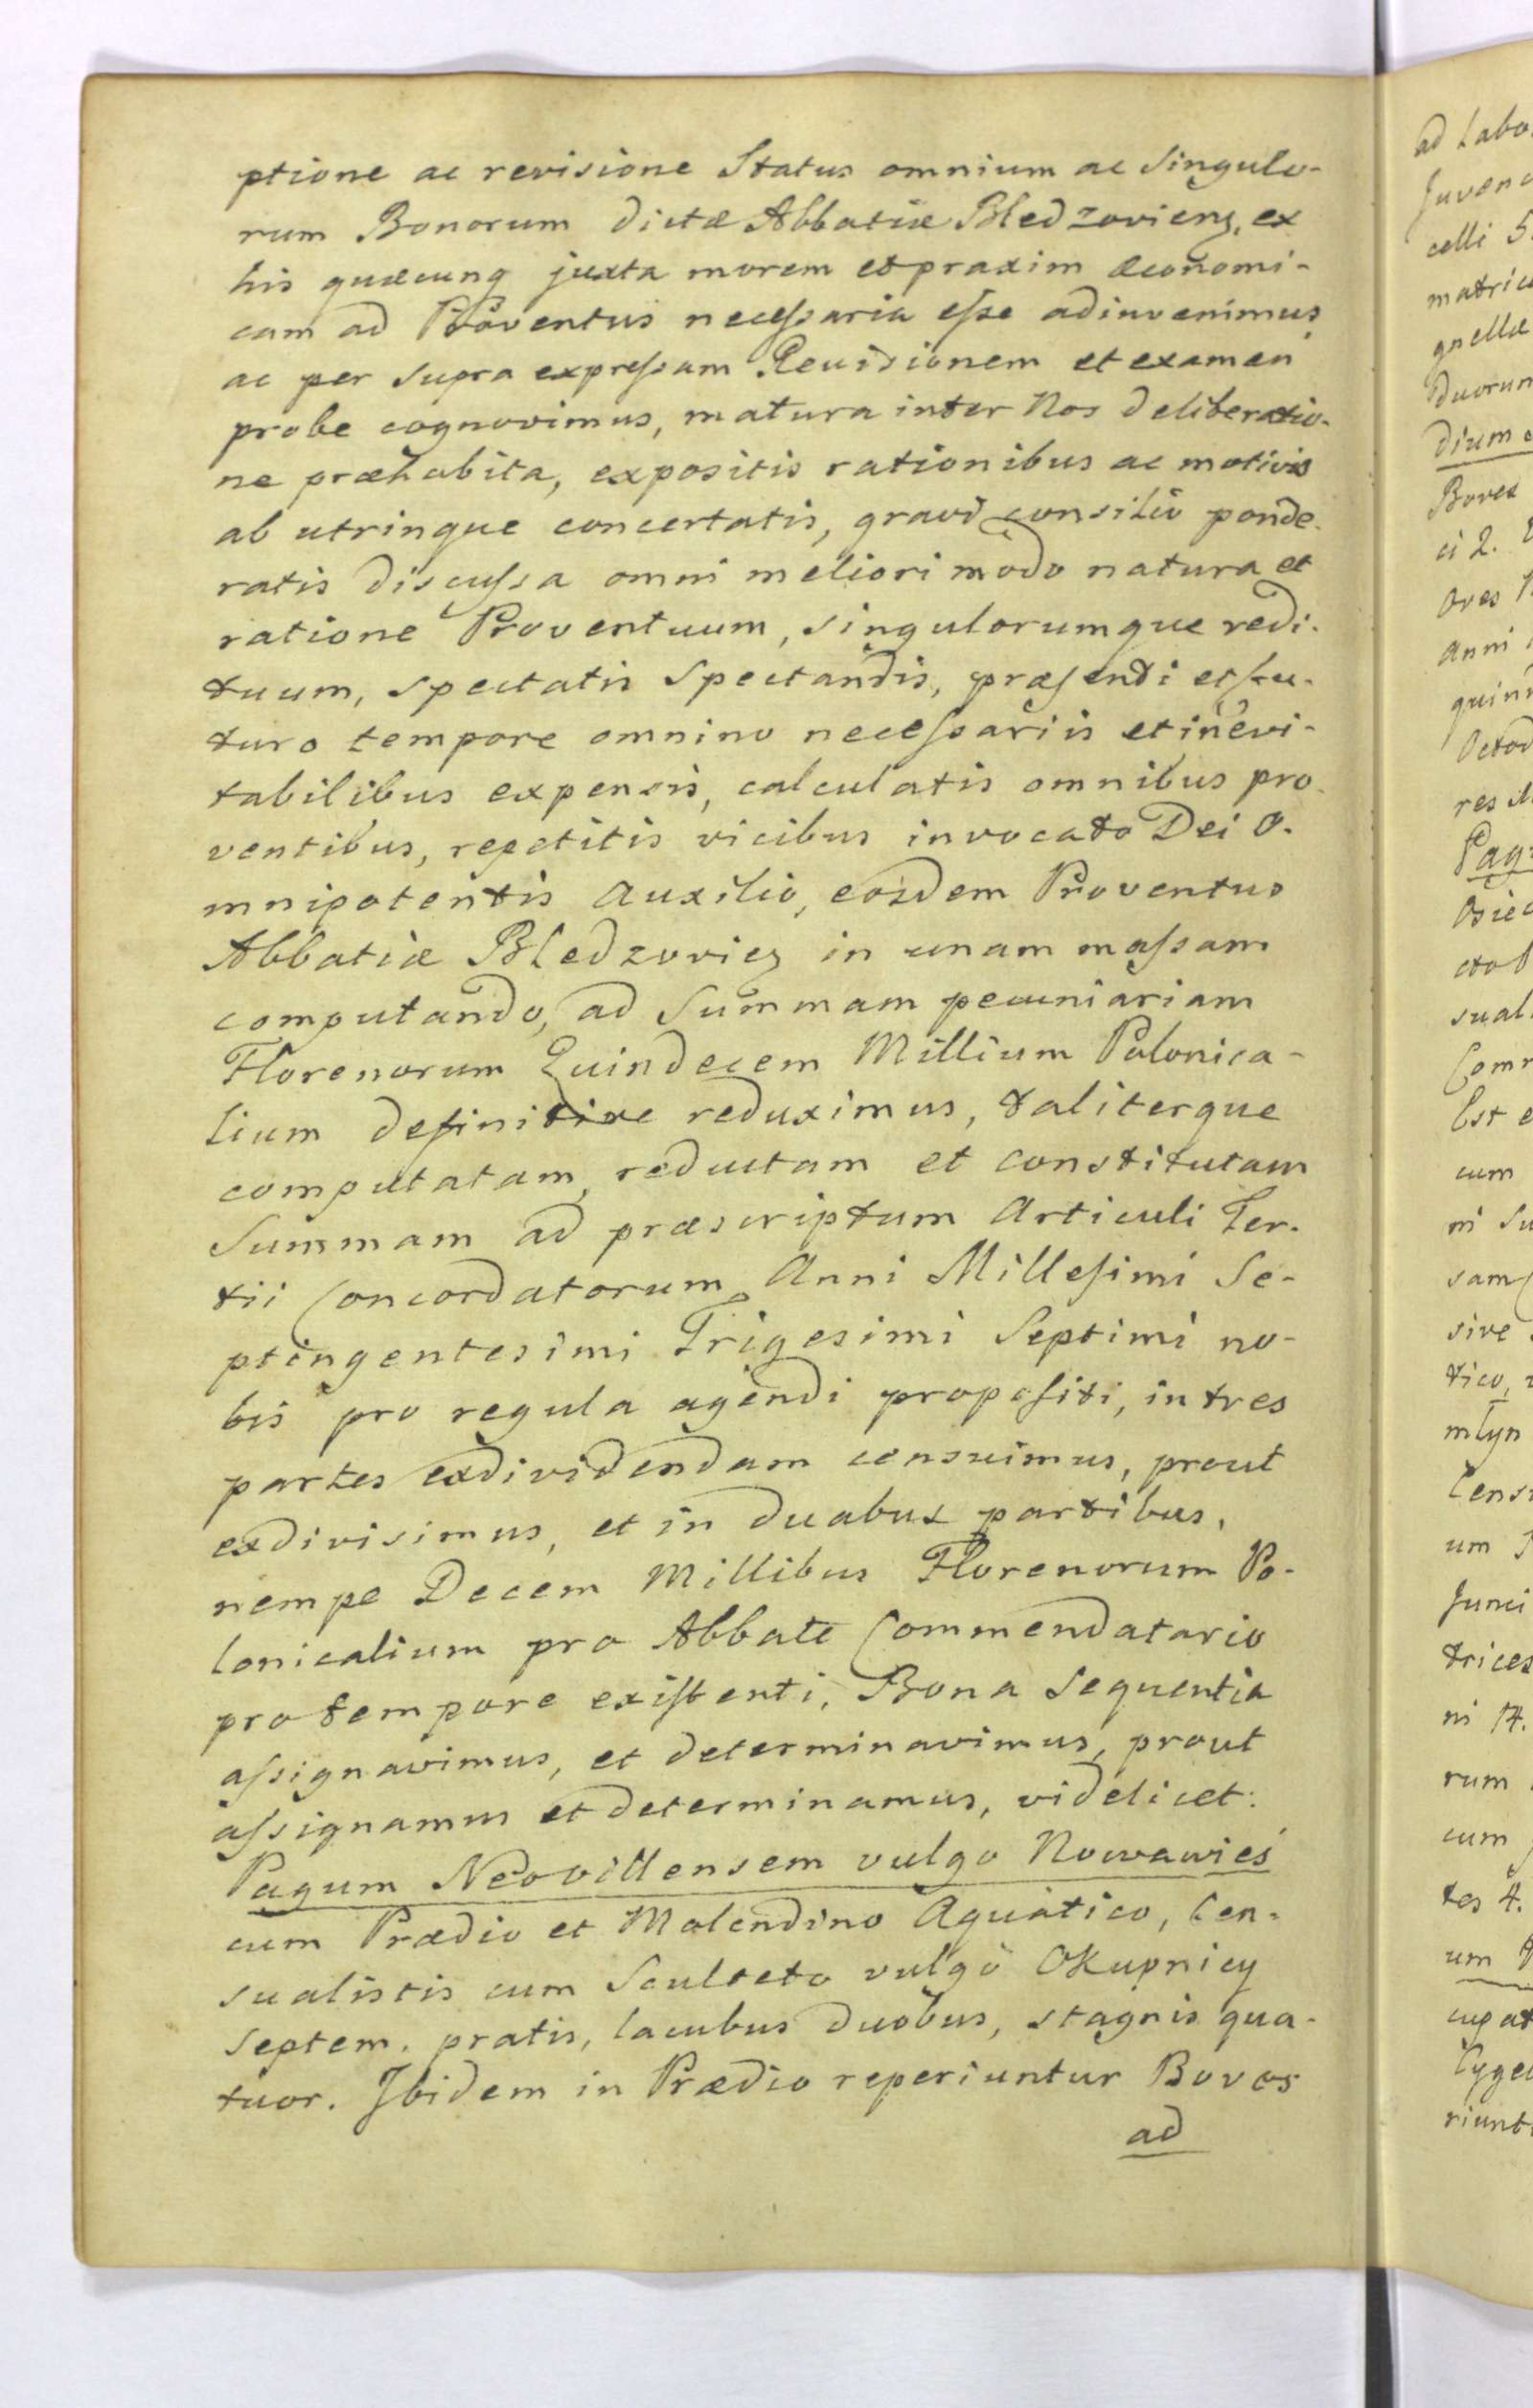 ptione ac revisione Status omnium ac Singulo-
rum Bonorum dictæ Abbatiæ Bledzoviens, ex
his quæcunq juxta morem et praxim œconomi-
cam ad Proventus necessaria esse adinvenimus
ac per supra expressam Revisionem et examen
probe cognovimus, matura inter Nos deliberatio-
ne præhabita, expositis rationibus ac motivis
ab utrinque concertatis, consilio ponde-
ratis discussa omni meliori modo natura et
ratione Proventuum, singulorumque redi-
tuum, spectatis Spectandis, præsenti et fu-
turo tempore omnino necessariis et inevi-
tabilibus expensis, calculatis omnibus pro-
ventibus, repetitis vicibus invocato Dei O-
mnipotentis Auxilio, eosdem Proventus
Abbatiæ Bledzovies in unam massam
computando, ad Summam pecuniariam
Florenorum Quindecem Millium Polonica-
lium definitive reduximus, taliterque
computatam, reductam et constitutam
Summam ad præscriptum Articuli Ter-
tii Concordatorum Anni Millesimi Se-
ptingentesimi Trigesimi Septimi no-
bis pro regula agendi propositi, in tres
partes exdividendam censuimus, prout
exdivisimus, et in duabus partibus,
nempe Decem Millibus Florenorum Po-
lonicalium pro Abbate Commendatario
pro tempore existenti, Bona Sequentia
assignavimus, et determinavimus, prout
assignamus et determinamus, videlicet:
Pagum Neovillensem vulgo Nowawieś
cum Prædio et Molendino Aquatico, Cen-
sualistis cum Sculteto vulgo Okupnicy
septem. pratis, lacubus duobus, stagnis qua-
tuor. Ibidem in Prædio reperiuntur Boves
ad
ad Labo
celli 5
gnellæ
duorum
dium
Boves
ci 2.
Oves
anni
Pag
sual
Est e
cum
sive
tico,
mlyn
Cens
um
trices
ni 14.
rum
cum
tes 4.
um
cupat
riunt